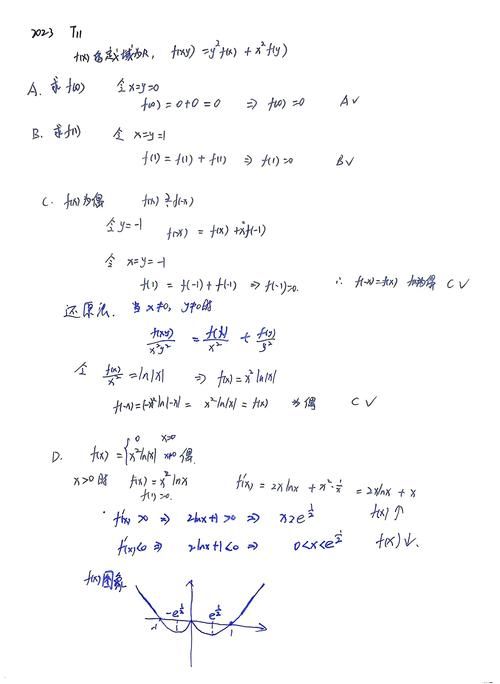 2023 T11
f(x)的定义域为R, f(xy)=y²f(x)+x²f(y)
A. 求f(0) 令x=y=0
f(0)=0+0=0 ⇒ f(0)=0 A✓
B. 求f(1) 令x=y=1
f(1)=f(1)+f(1) ⇒ f(1)=0 B✓
C. f(x)为偶 f(x)?f(-x)
令y=-1 f(-x)=f(x)+x²f(-1)
令x=y=-1
f(1)=f(-1)+f(-1) ⇒ f(-1)=0. ∴ f(-x)=f(x) 为偶 C✓
还原法. 当x≠0, y≠0时
f(xy)/x²y² = f(x)/x² + f(y)/y²
令 f(x)/x² = ln|x| ⇒ f(x)=x²ln|x|
f(-x)=(-x)²ln|-x|= x²ln|x|=f(x) 为偶 C✓
D. f(x)={0 x=0
x²ln|x| x≠0 偶.
x>0时 f(x)=x²lnx f'(x)=2xlnx+x²·1/x =2xlnx+x
f(1)=0.
f'(x)>0 ⇒ 2lnx+1>0 ⇒ f(x)↑
f'(x)<0 ⇒ 2lnx+1<0 ⇒ f(x)↓.
f(x)图象
-1 1